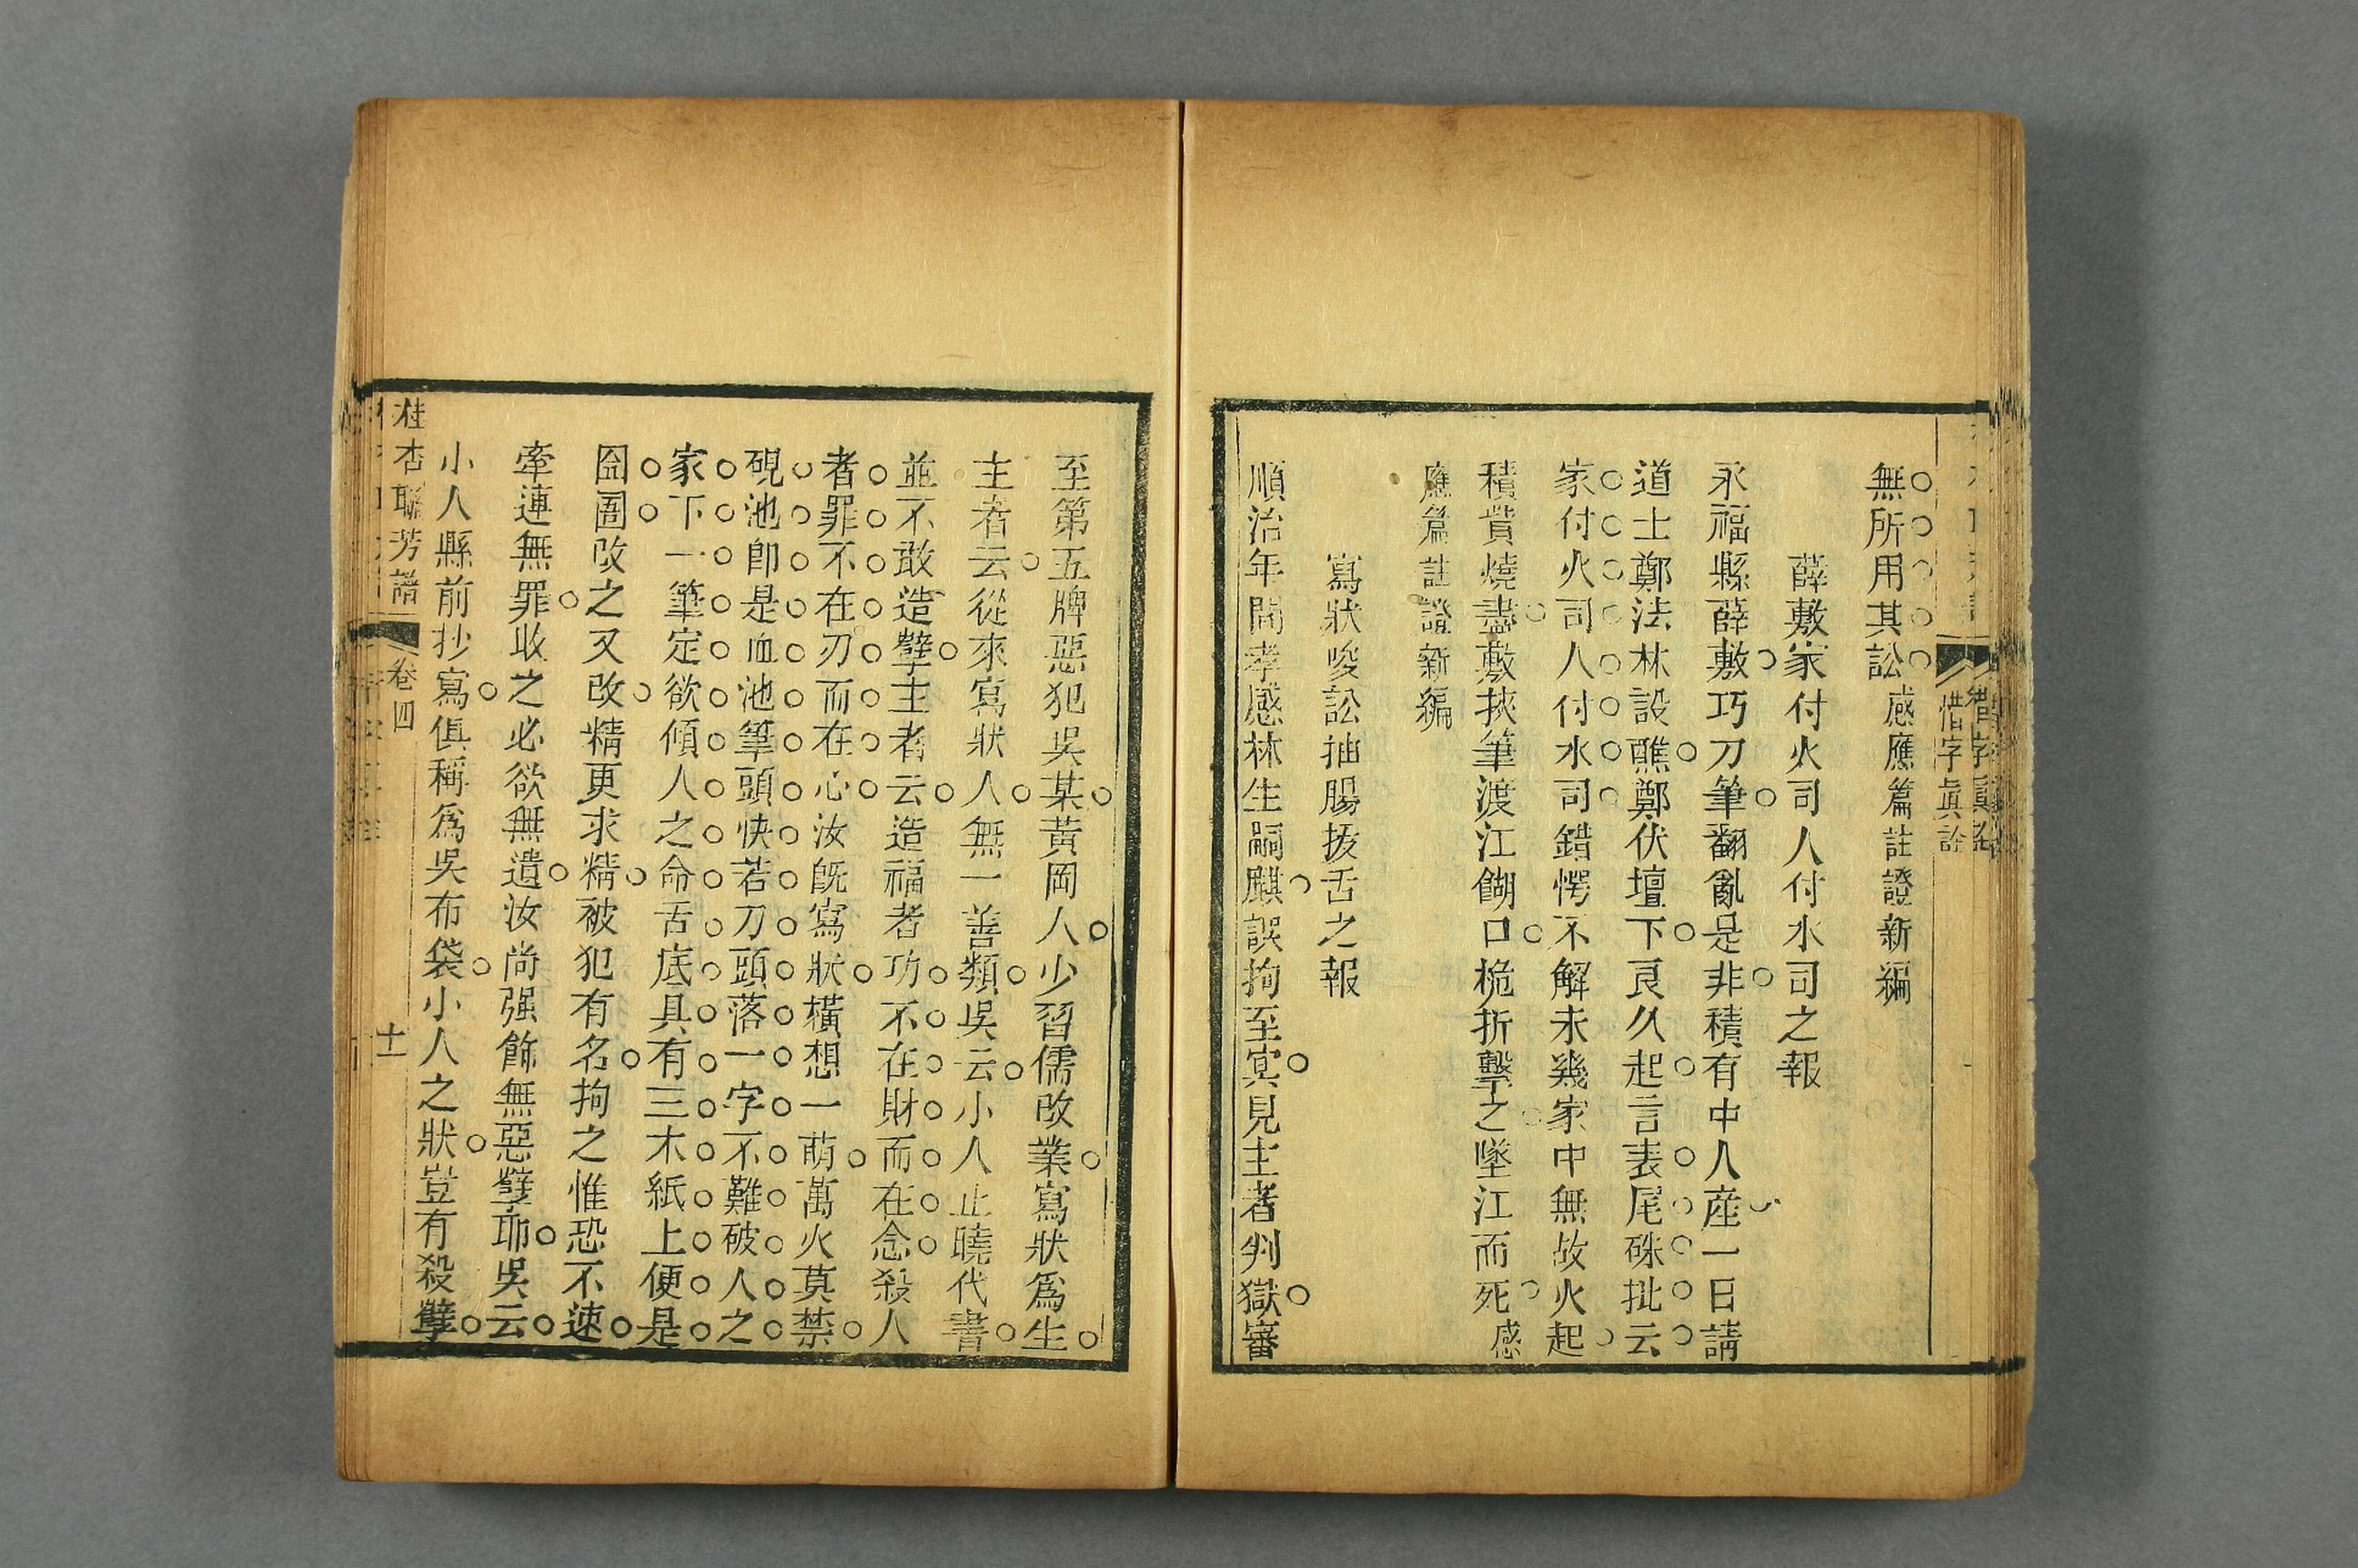 無所用其訟感應篇註證新編
薛敷家付火司人付水司之報
永福縣薛敷巧刀筆翻亂是非積有中人産一日請
道士鄭法林設醮鄭伏壇下良久起言表尾硃批云
家付火司人付水司錯愕不解未幾家中無故火起
積貲燒盡敷挾筆渡江餬口桅折擊之墜江而死感
應篇註證新編
寫狀唆訟抽腸拔舌之報
順治年間孝感林生嗣麒誤拘至冥見主者判獄審
至第五牌惡犯吳某黃岡人少習儒改業寫狀爲生
主者云從來寫狀人無一善類吳云小人止曉代書
並不敢造孽主者云造福者功不在財而在念殺人
者罪不在刃而在心汝既寫狀橫想一萌萬火莫禁
硯池卽是血池筆頭快若刀頭落一字不難破人之
家下一筆定欲傾人之命舌底具有三木紙上便是
囹圄改之又改精更求精被犯有名拘之惟恐不速
牽連無罪收之必欲無遺汝尚强飾無惡孽耶吳云
小人縣前抄寫俱稱爲吳布袋小人之狀豈有殺孽
桂杏聯芳譜 卷四 十一
惜字眞詮